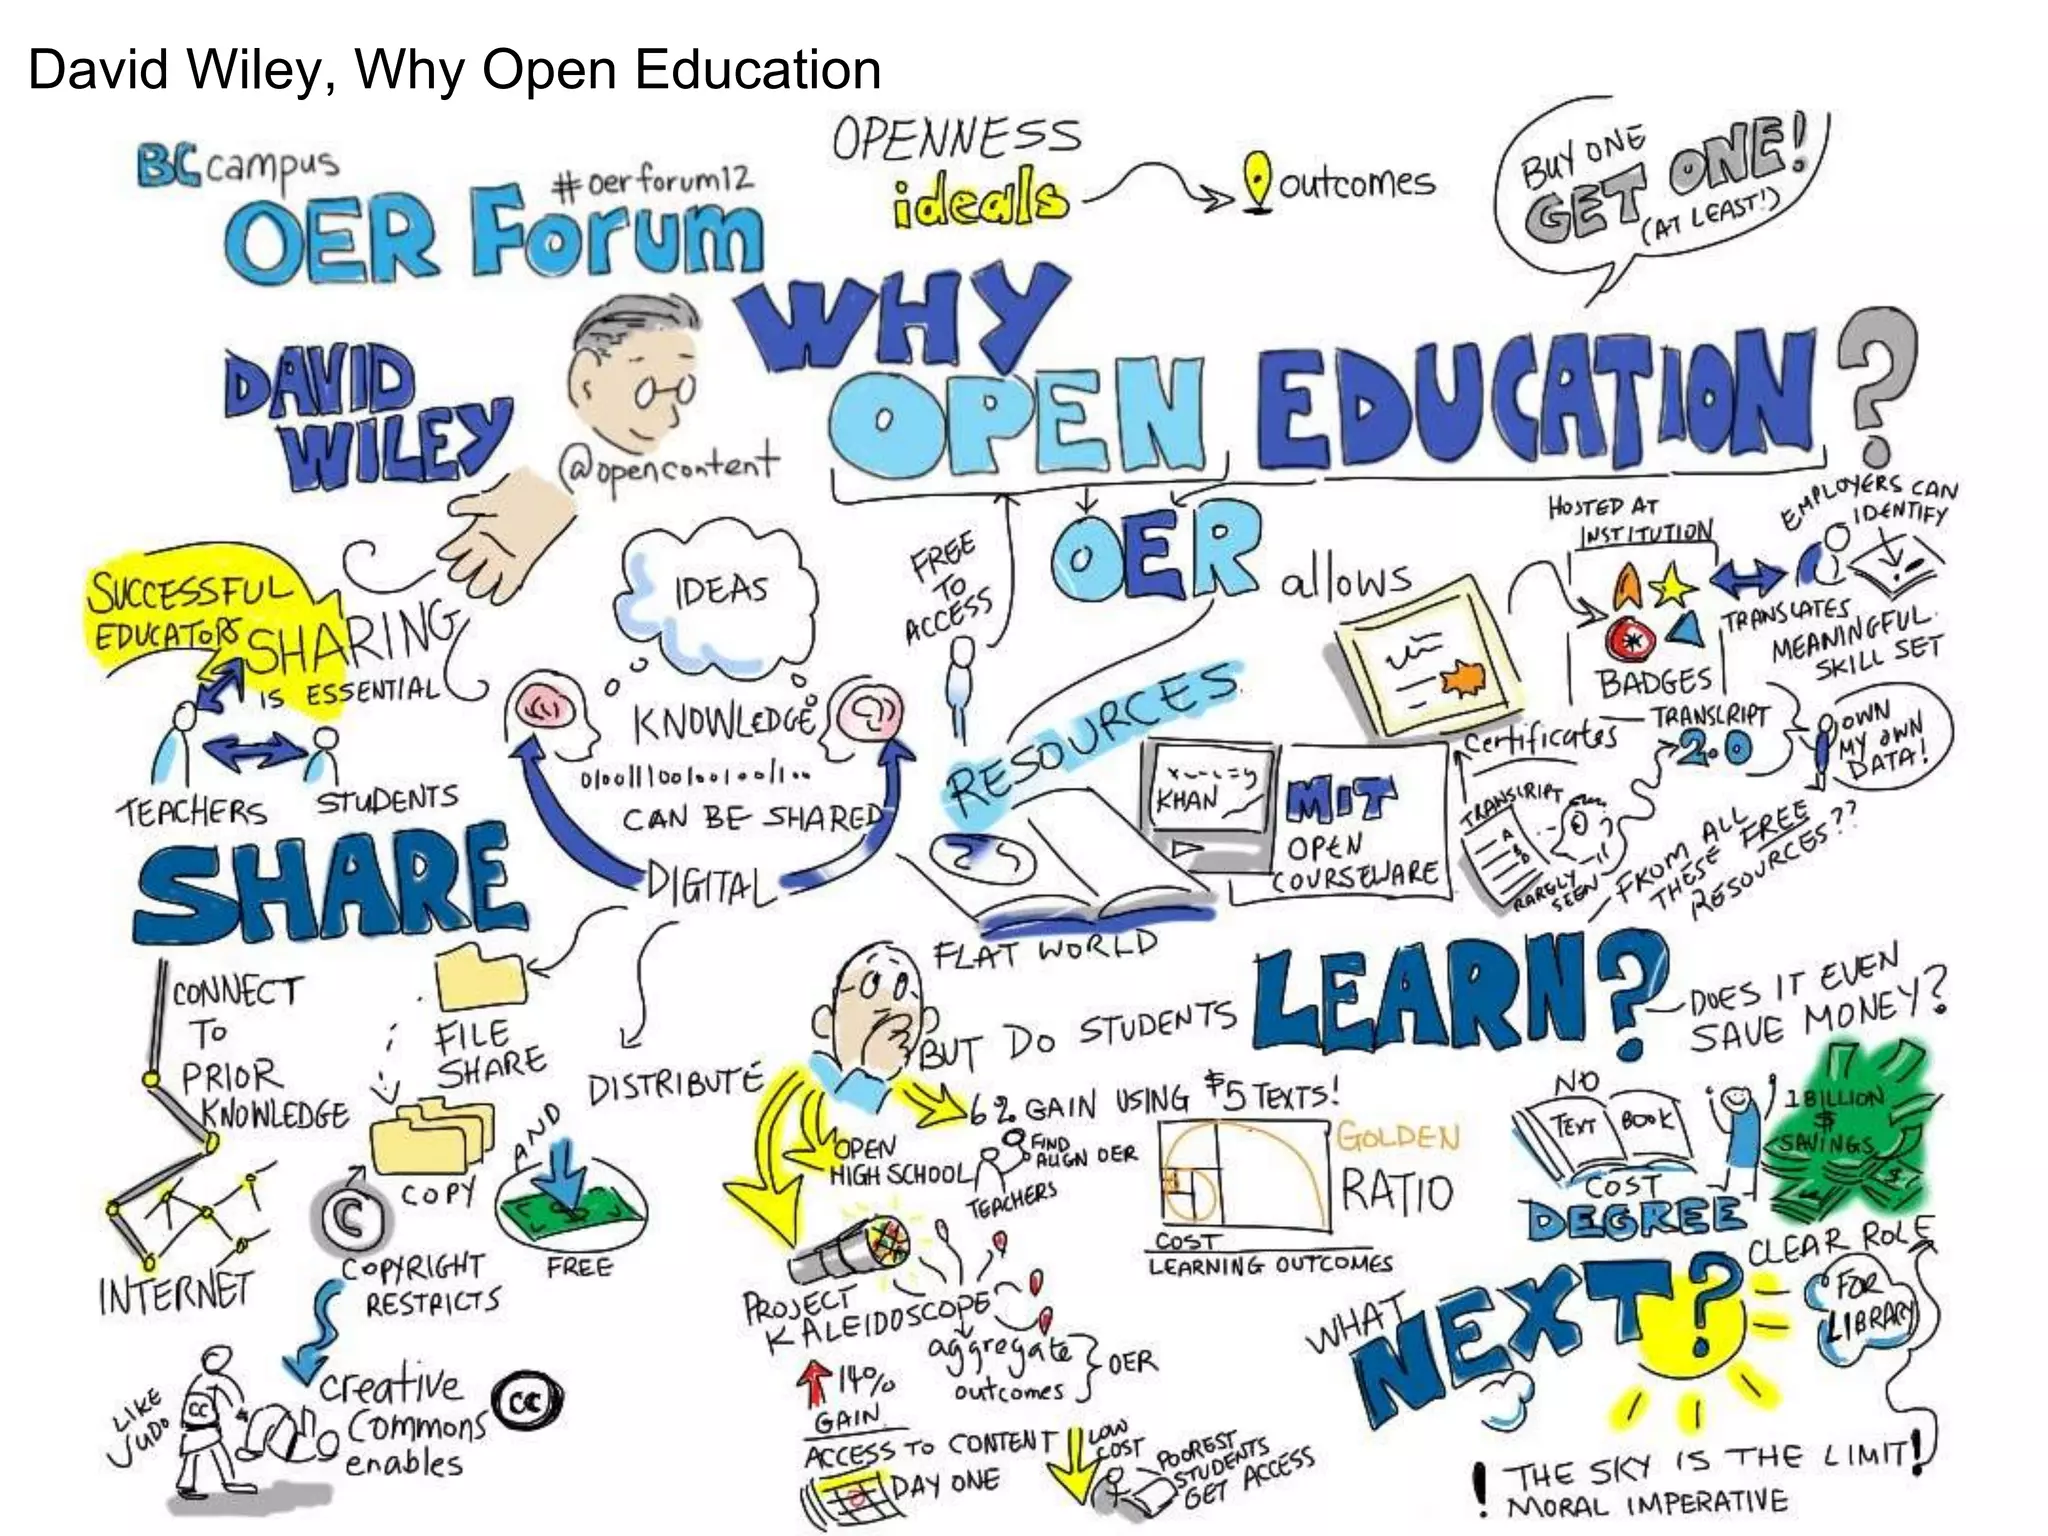 David Wiley, Why Open Education
BCcampus
#oerforum12
OER Forum
DAVID
WILEY
@opencontent
OPENNESS
ideals
outcomes
BUY ONE
GET ONE!
(AT LEAST!)
WHY
OPEN EDUCATION?
SUCCESSFUL
EDUCATORS
SHARING
IS ESSENTIAL
TEACHERS
STUDENTS
SHARE
IDEAS
KNOWLEDGE
CAN BE SHARED
DIGITAL
FREE
TO
ACCESS
OER
allows
RESOURCES
FLAT WORLD
KHAN
MIT
OPEN
COURSEWARE
HOSTED AT
INSTITUTION
BADGES
EMPLOYERS CAN
IDENTIFY
TRANSLATES
MEANINGFUL
SKILL SET
Certificates
TRANSCRIPT
2.0
OWN
MY OWN
DATA!
TRANSCRIPT
RARELY
SEEN
FROM ALL
THESE FREE
RESOURCES??
CONNECT
TO
PRIOR
KNOWLEDGE
INTERNET
FILE
SHARE
COPY
DISTRIBUTE
AND
FREE
C
COPYRIGHT
RESTRICTS
LIKE
JUDO
CC
creative
commons
enables
CC
BUT DO STUDENTS
LEARN?
DOES IT EVEN
SAVE MONEY?
6% GAIN USING $5 TEXTS!
OPEN
HIGH SCHOOL
FIND
ALIGN OER
TEACHERS
GOLDEN
RATIO
COST
LEARNING OUTCOMES
NO
TEXT BOOK
COST
DEGREE
1 BILLION
$
SAVINGS
PROJECT
KALEIDOSCOPE
aggregate
outcomes
OER
14%
GAIN
ACCESS TO CONTENT
DAY ONE
LOW
COST
POOREST
STUDENTS
GET ACCESS
WHAT
NEXT?
CLEAR ROLE
FOR
LIBRARY
! THE SKY IS THE LIMIT!
MORAL IMPERATIVE